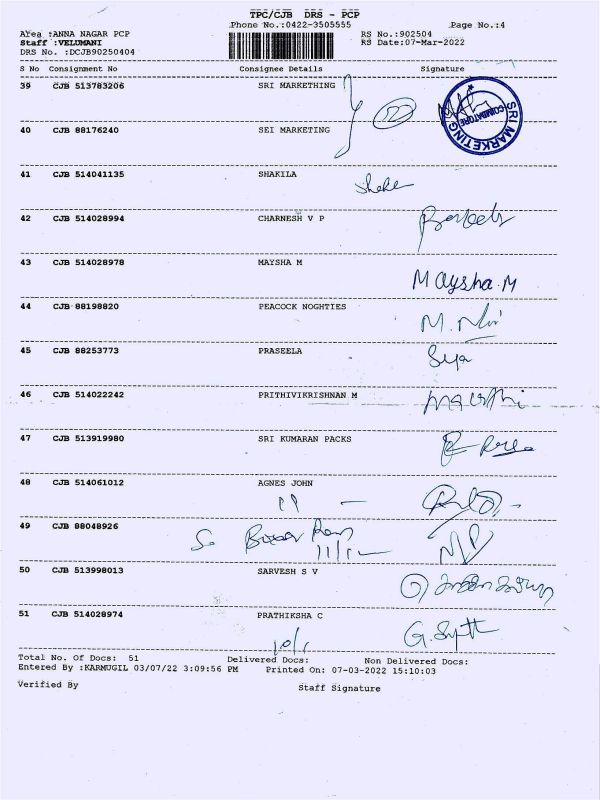 TPC/CJB DRS - PCP
Phone No.:0422-3505555 Page No.:4
Area :ANNA NAGAR PCP RS No.:902504
Staff :VELUMANI RS Date:07-Mar-2022
DRS No. :DCJB90250404
S No Consignment No Consignee Details Signature
39 CJB 513783206 SRI MARKETHING
SRI MARKETING COIMBATORE
40 CJB 88176240 SEI MARKETING
41 CJB 514041135 SHAKILA
42 CJB 514028994 CHARNESH V P
43 CJB 514028978 MAYSHA M
Maysha.M
44 CJB 88198820 PEACOCK NOGHTIES
45 CJB 88253773 PRASEELA
46 CJB 514022242 PRITHIVIKRISHNAN M
47 CJB 513919980 SRI KUMARAN PACKS
48 CJB 514061012 AGNES JOHN
49 CJB 88048926
50 CJB 513998013 SARVESH S V
51 CJB 514028974 PRATHIKSHA C
Total No. Of Docs: 51 Delivered Docs: Non Delivered Docs:
Entered By :KARMUGIL 03/07/22 3:09:56 PM Printed On: 07-03-2022 15:10:03
Verified By Staff Signature